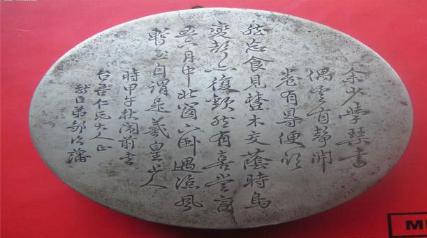 余少學琴書
偶愛閒靜開
卷有得便欣
然忘食見樹木交蔭時鳥
變聲亦復歡然有喜嘗言
五六月中北窗下卧遇涼風
暫至自謂是羲皇上人
時甲子秋
仁兄大人正
弟
M